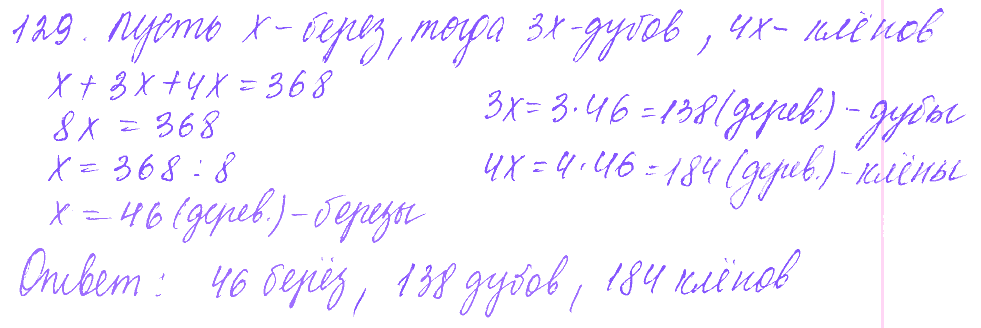 129. Пусть х - берез, тогда 3х-дубов, 4х- клёнов
х + 3х + 4х = 368
8х = 368
х = 368 : 8
х = 46 (дерев.) - березы
3х = 3·46 = 138 (дерев.) - дубы
4х = 4·46 = 184 (дерев.) - клёны
Ответ: 46 берёз, 138 дубов, 184 клёнов